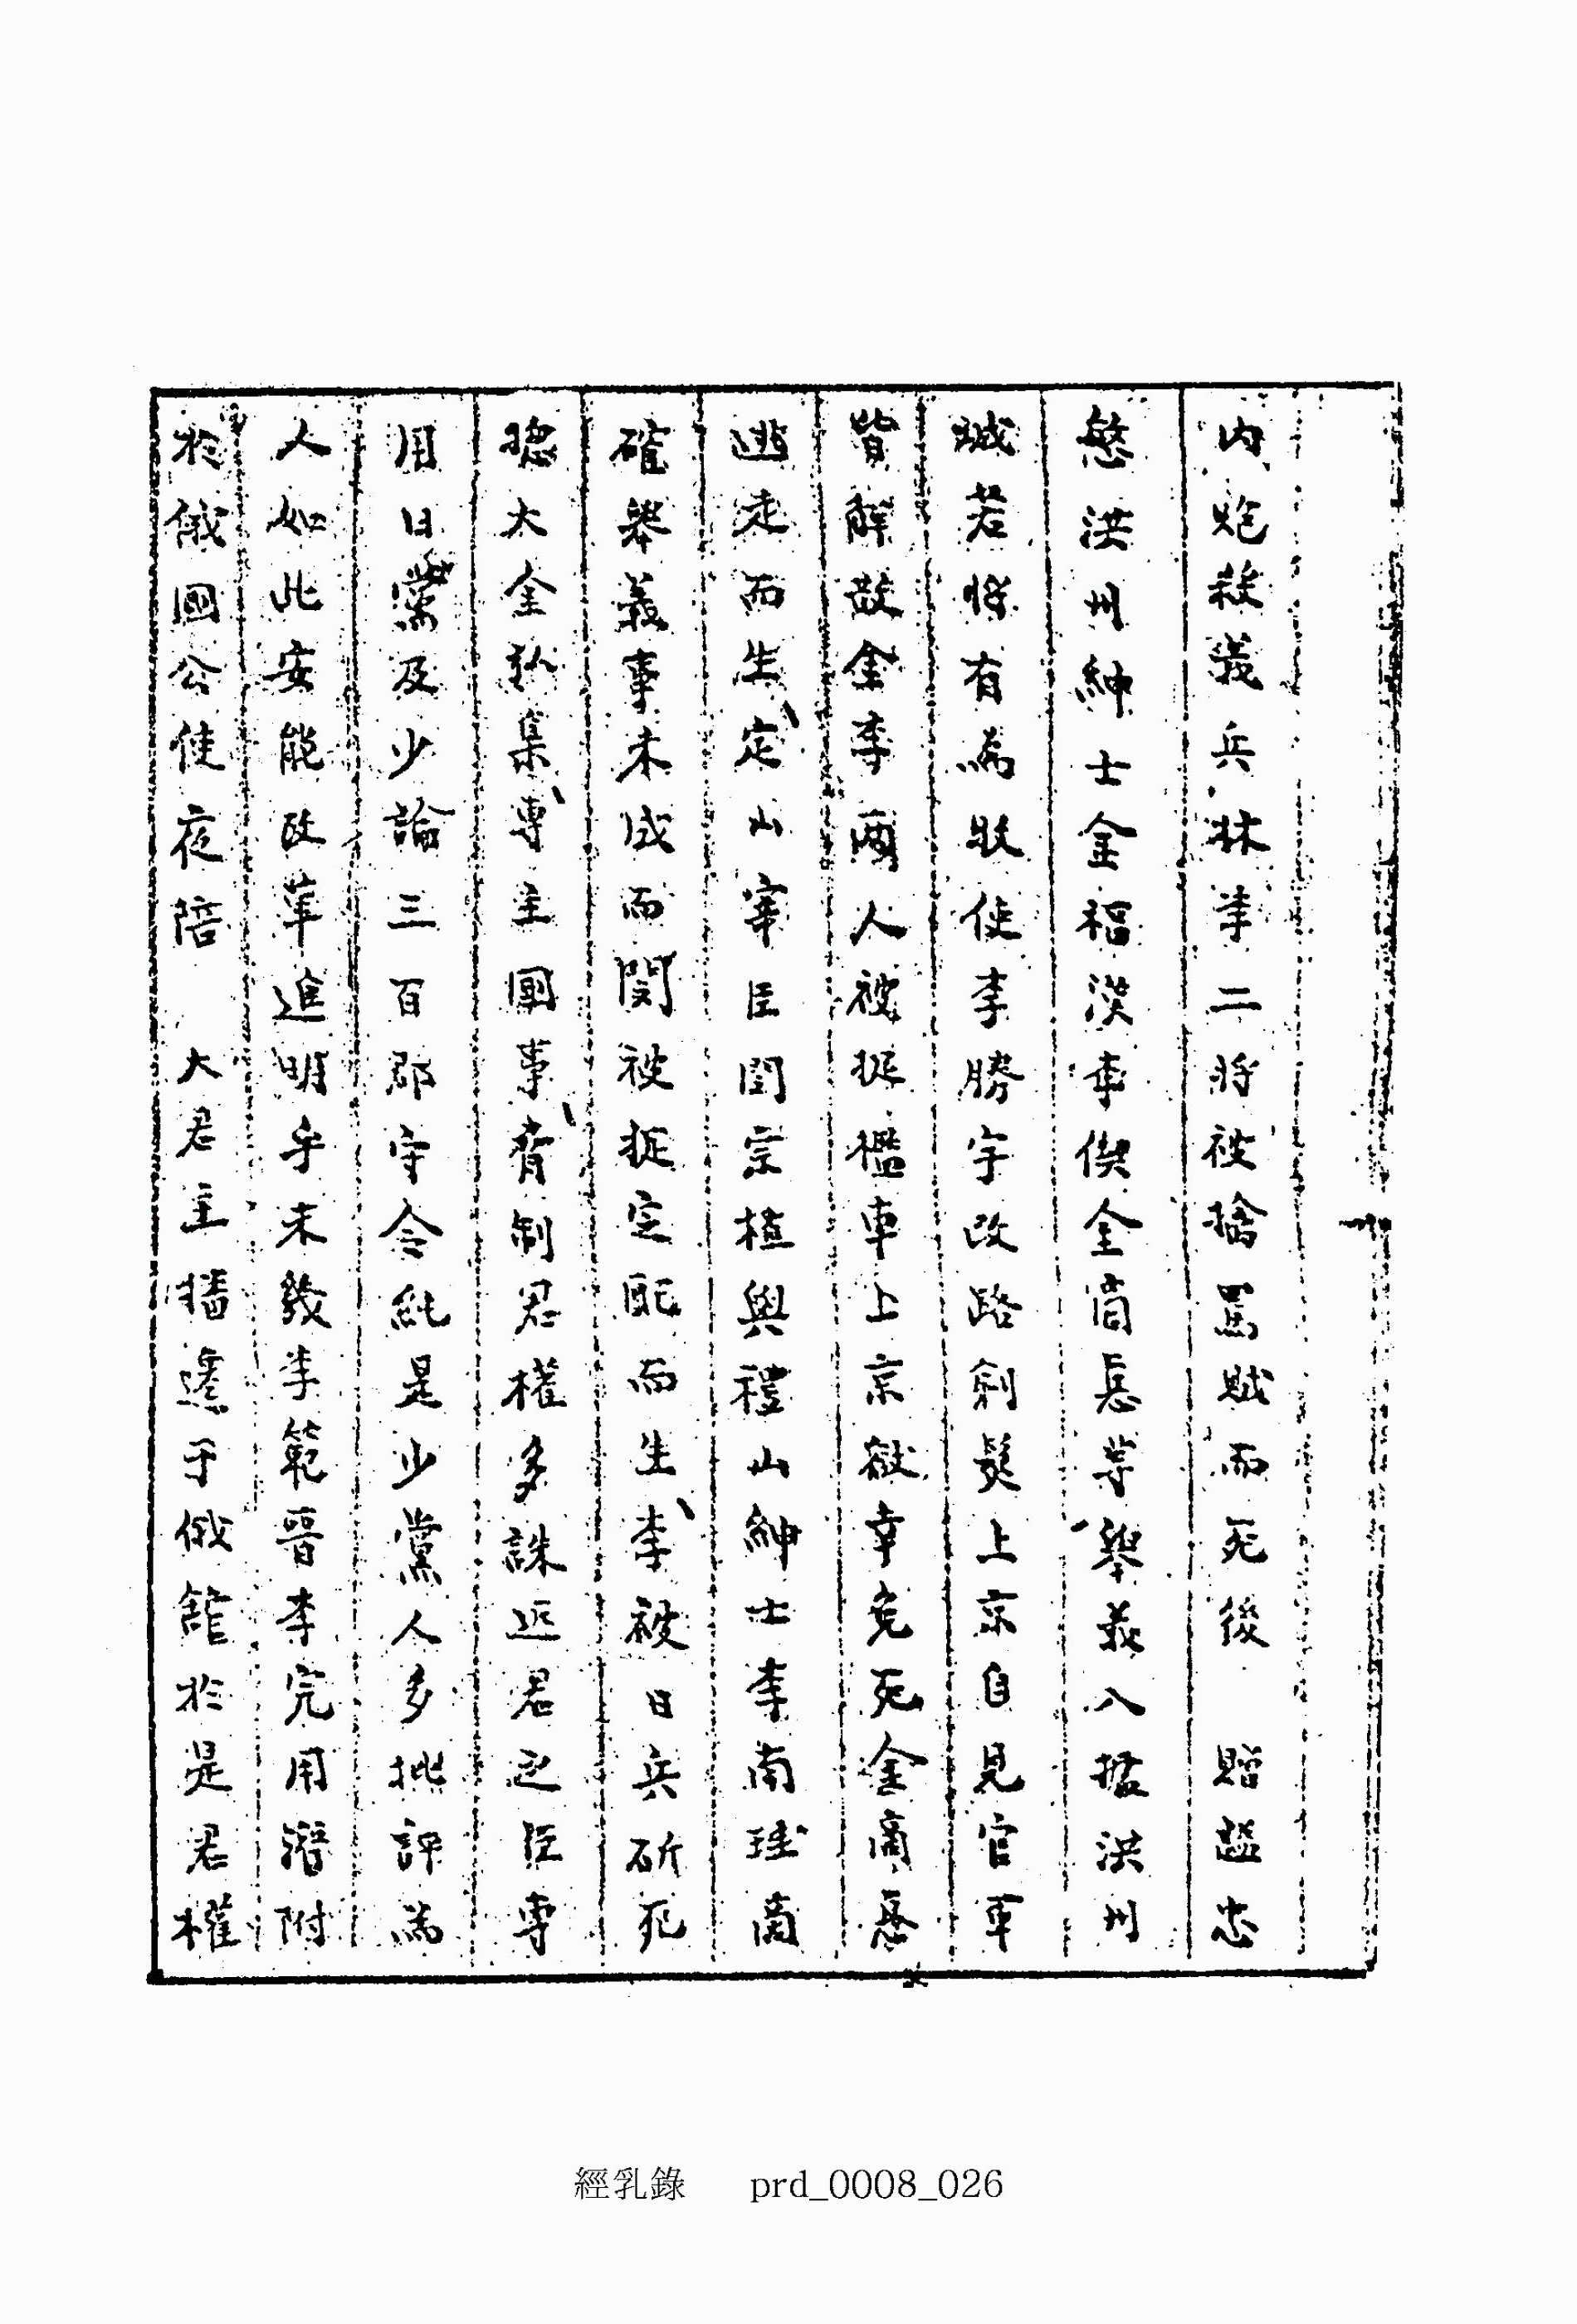 內炮殺義兵林李二將被擒罵賊而死後 贈諡忠
愍洪州紳士金福漢李偰金商悳等擧義入據洪州
城若將有爲狀使李勝宇改路剃髮上京自見官軍
皆解散金李兩人被捉檻車上京獄幸免死金商悳
逃走而生定山宰臣閔宗植與禮山紳士李南珪商
確擧義事未成而閔被捉定配而生李被日兵斫死
總大金弘集專主國事脅制君權多誅近君之臣專
用日黨及少論三百郡守令純是少黨人多批評爲
人如此安能改革進明乎未幾李範晋李完用潛附
於俄國公使夜陪 大君主播遷于俄館於是君權
經乳錄 prd_0008_026